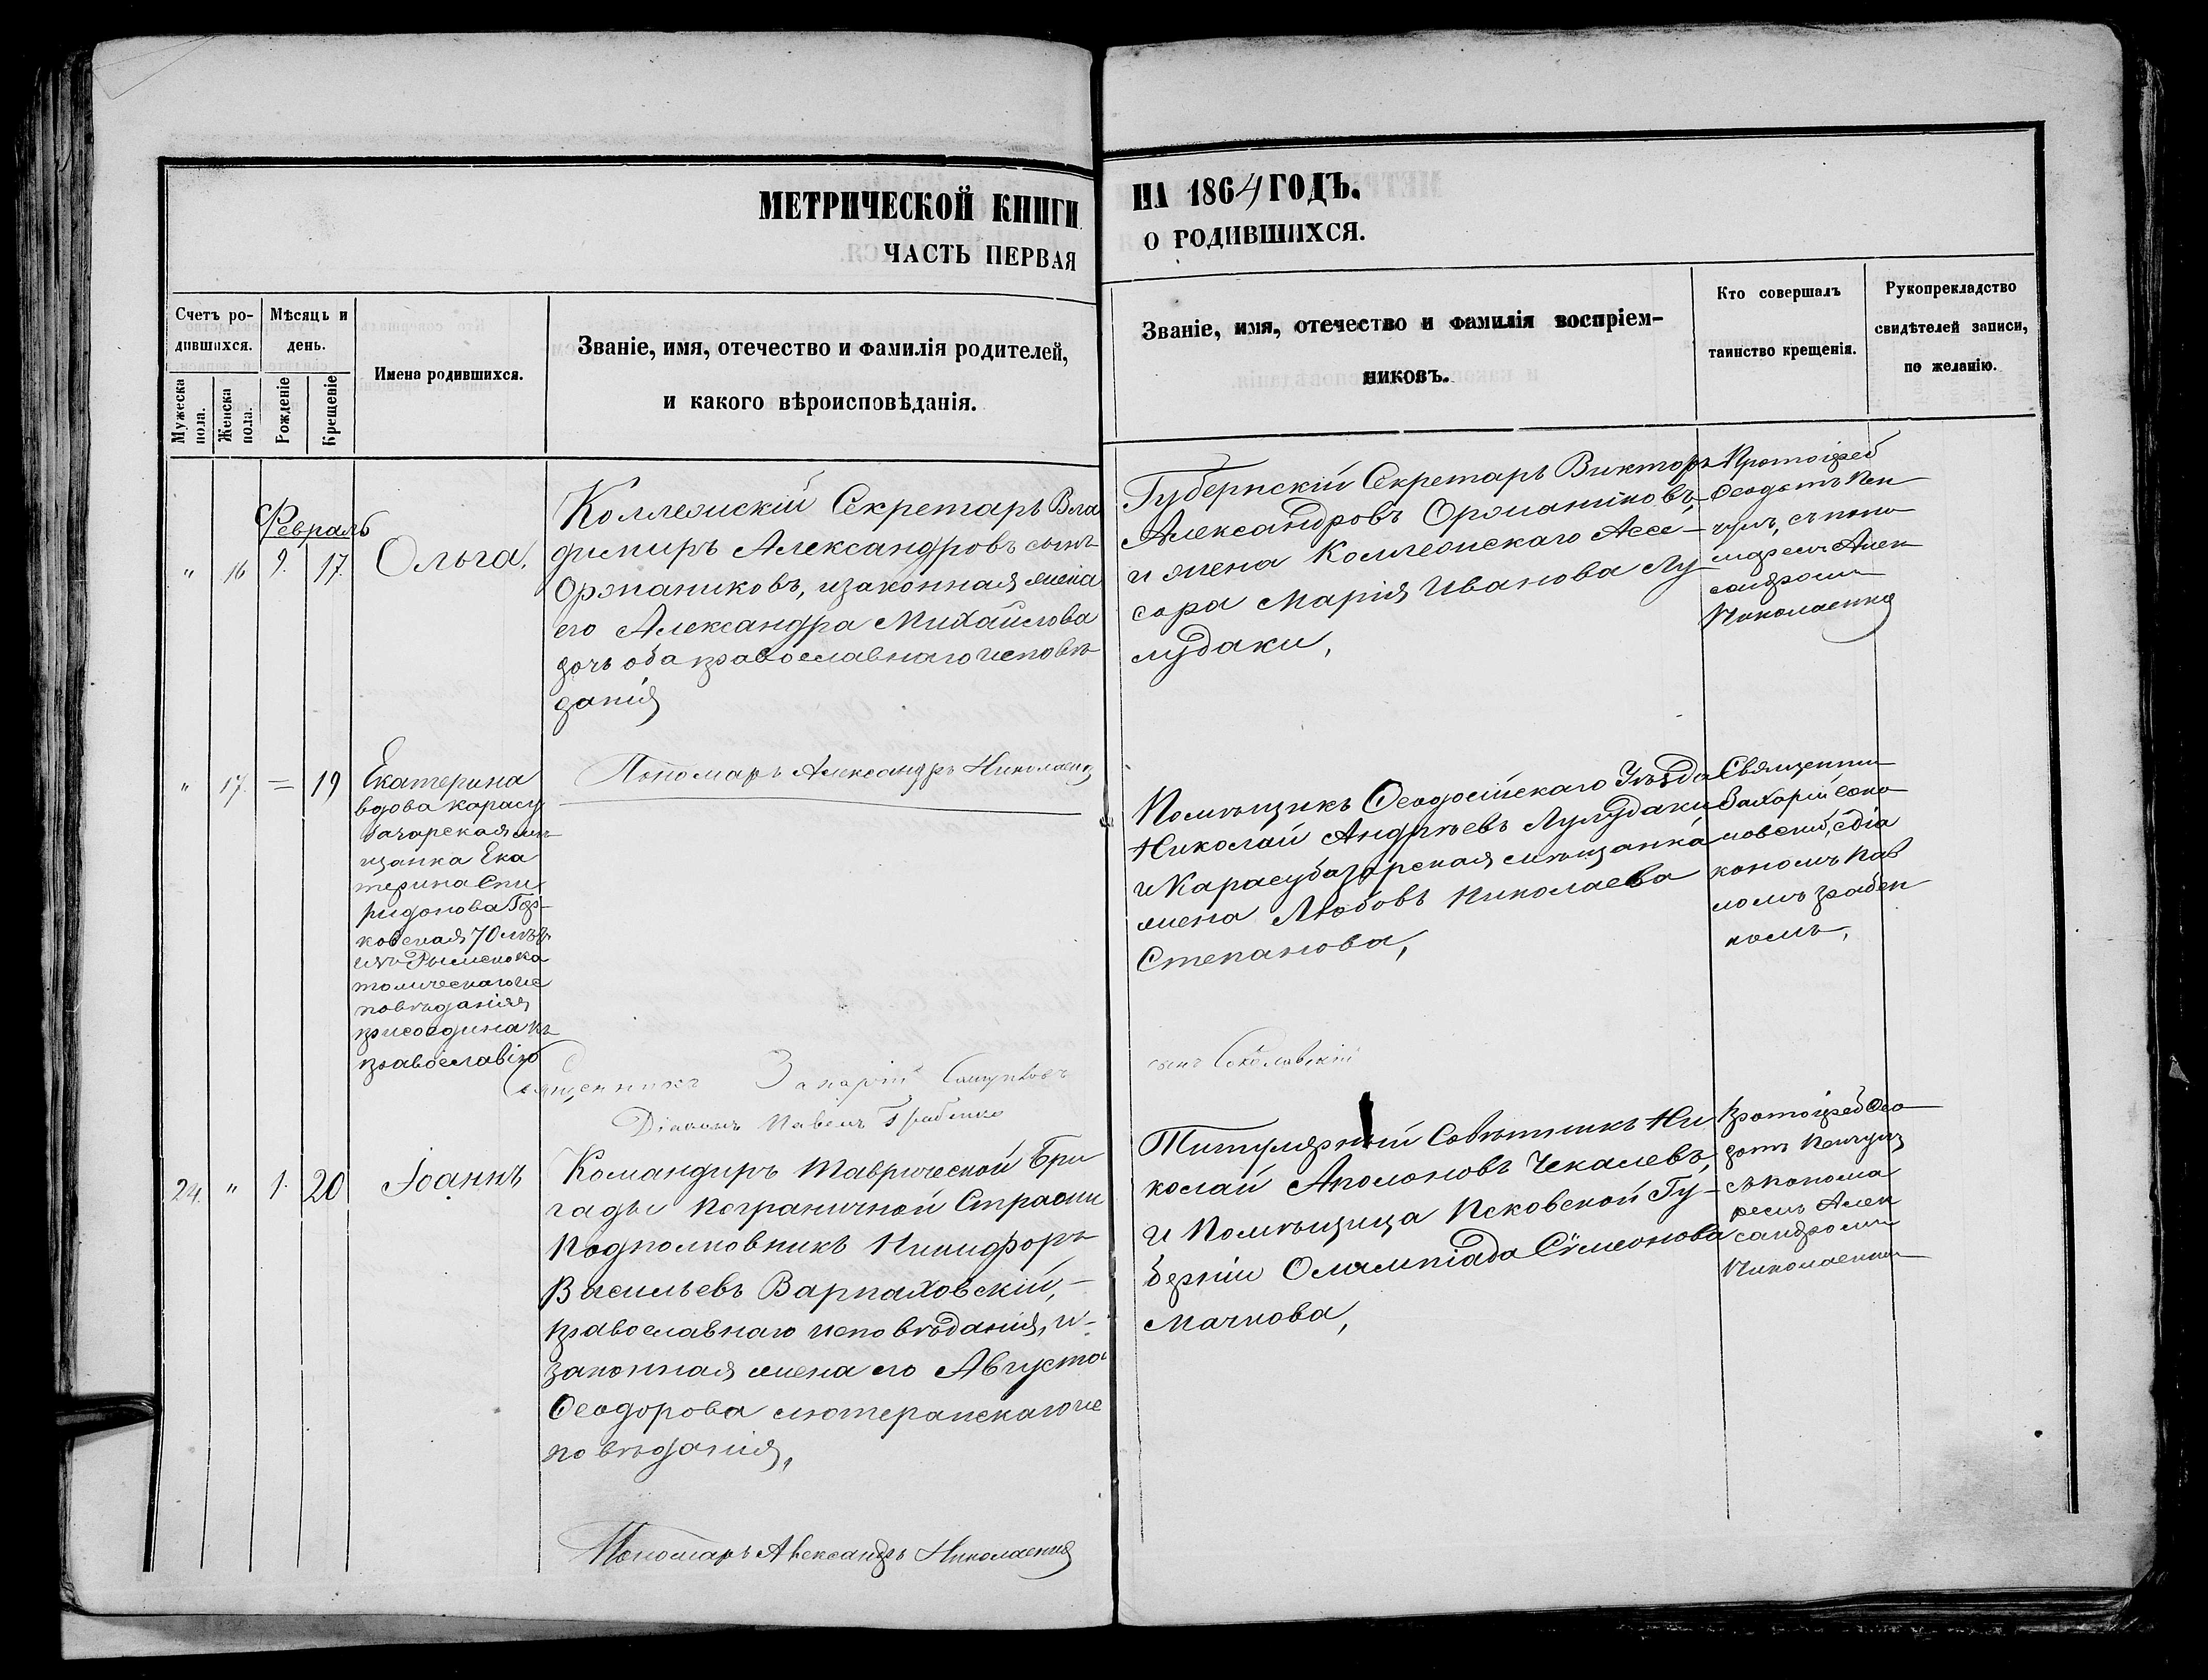 МЕТРИЧЕСКОЙ КНИГИ
НА 1864 ГОДЪ.
ЧАСТЬ ПЕРВАЯ
О РОДИВШИХСЯ.
Счетъ ро-
дившихся.
Мужеска пола.
Женска пола.
Мѣсяцъ и
день.
Рожденіе
Крещеніе
Имена родившихся.
Званіе, имя, отечество и фамилія родителей,
и какого вѣроисповѣданія.
Званіе, имя, отечество и фамилія воспріем-
никовъ.
Кто совершалъ
таинство крещенія.
Рукоприкладство
свидѣтелей записи,
по желанію.
Февраль
" 16 9. 17.
Ольга,
Коллежскій Секретарь Вла
димиръ Александровъ сынъ
Оржаниковъ, изаконная жена
его Александра Михайлова
дочь оба православнаго исповѣ
данія
Губернскій Секретарь Викторъ
Александровъ Оржаниковъ,
и жена Коллежскаго Ассе-
сора Марія Иванова Лу
лудаки,
Протоіерей
Ѳеодотъ
съ поно
маремъ Алек
сандромъ
Николаенко
Пономарь Александръ Николаенко
" 17. = 19
Екатерина
вдова карасу
базарская мѣ
щанка Ека
терина Спи
ридонова
70 лѣтъ
изъ Римскока
толическаго ис
повѣданія
присоедина къ
православію
Помѣщикъ Ѳеодосійскаго Уѣзда
Николай Андрѣевъ Лулудаки
и Карасубазарская мѣщанка
жена Любовь Николаева
Степанова,
Священни
Захарій Соко
ловскій, съ діа
кономъ Пав
ломъ Грабен
комъ,
Священникъ Захарій
Соколовскій
Діаконъ Павелъ Грабенко
24. " 1. 20
Іоаннъ
Командиръ Таврической Бри
гады Пограничной Стражи
Подполковникъ Никифоръ
Васильевъ Варпаховскій,
православнаго исповѣданія, и
законная жена его Августа
Ѳеодорова лютеранскаго ис
повѣданія,
Титулярный Совѣтникъ Ни
колай Аполоновъ Чекалевъ,
и Помѣщица Псковской Гу-
берніи Олимпіада Сѵмеонова
Мачкова,
Протоіерей Ѳео
дотъ
съ понома
ремъ Алек
сандромъ
Николаенко
Пономарь Александръ Николаенко